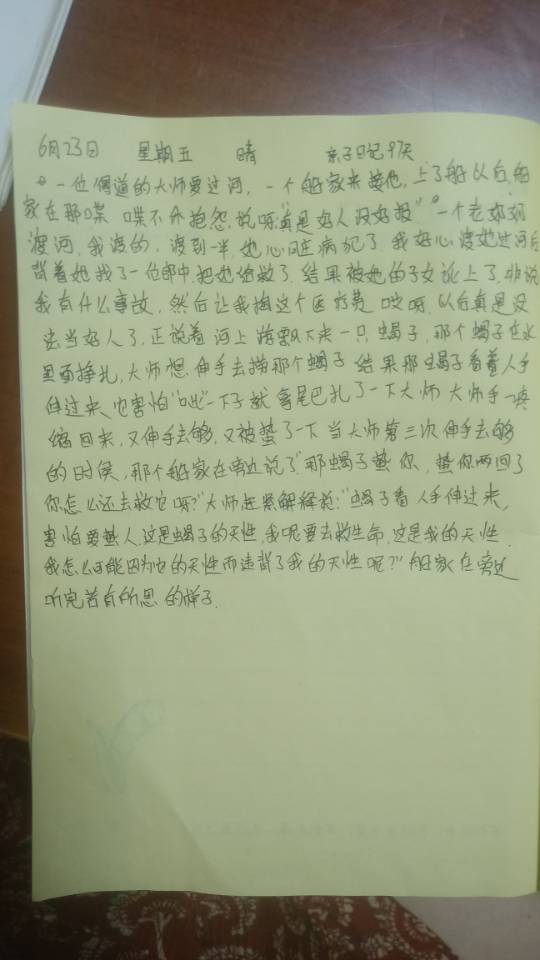 6月23日 星期五 晴 亲子日记97天
一位得道的大师要过河,一个船家来接他,上了船以后,船
家在那喋喋不休抱怨,说呀"真是好人没好报"一个老奶奶
渡河,我渡的,渡到一半她心脏病犯了,我好心渡她过河后
背着她找了一位郎中,把她给救了.结果被她的子女讹上了,非说
我有什么事故,然后让我掏这个医疗费 哎呀,以后真是没
法当好人了,正说着河上游飘下来一只蝎子,那个蝎子在水
里面挣扎,大师想伸手去捞那个蝎子 结果那蝎子看着人手
伸过来也害怕"吡"一下子就拿尾巴扎了一下大师 大师手一
缩回来,又伸手去够,又被蛰了一下 当大师第三次伸手去够
的时候,那个船家在旁边说了"那蝎子蛰你,蛰你两回了
你怎么还去救它呀?"大师赶紧解释说:"蝎子看人手伸过来,
害怕要蛰人,这是蝎子的天性,我呢要去救生命,这是我的天性.
我怎么可能因为它的天性而违背了我的天性呢?"船家在旁边
听完若有所思的样子.